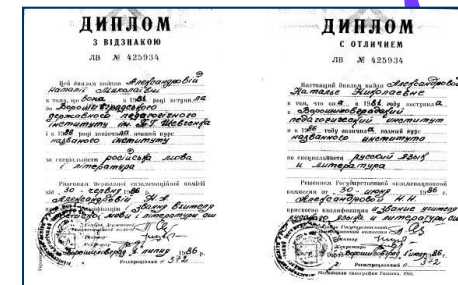 ДИПЛОМ
З ВІДЗНАКОЮ
ЛВ № 425934
Цей диплом видано Александровій
Наталії Миколаївні
в тому, що вона в 1981 році вступила
до Ворошиловградського
державного педагогічного
інституту ім. Т.Г. Шевченка
і в 1986 році закінчила повний курс
названого інституту
за спеціальністю російська мова
і література
Рішенням Державної екзаменаційної комісії
від 30 червня 1986 р.
Александровій Н.М.
мови і літератури
Ворошиловград 1986 р.
Реєстраційний № 372
ДИПЛОМ
С ОТЛИЧИЕМ
ЛВ № 425934
Настоящий диплом выдан Александровой
Наталье Николаевне
в том, что она в 1981 году поступила
в Ворошиловградский
педагогический институт
и в 1986 году окончила полный курс
названного института
по специальности русский язык
и литература
Решением Государственной экзаменационной
комиссии от 30 июня 1986 г.
Александровой Н.Н.
присвоена квалификация и звание учителя
русского языка и литературы
Государственной
Ворошиловград 1986 г.
Регистрационный № 372